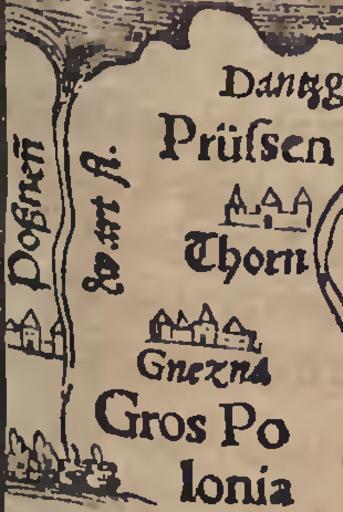 Dantzg
Prüſsen
Thorn
Gnezna
Gros Po
lonia
Poßneñ